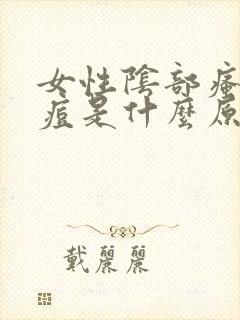 女性陰部瘙
痘是什麼原
戴麗麗